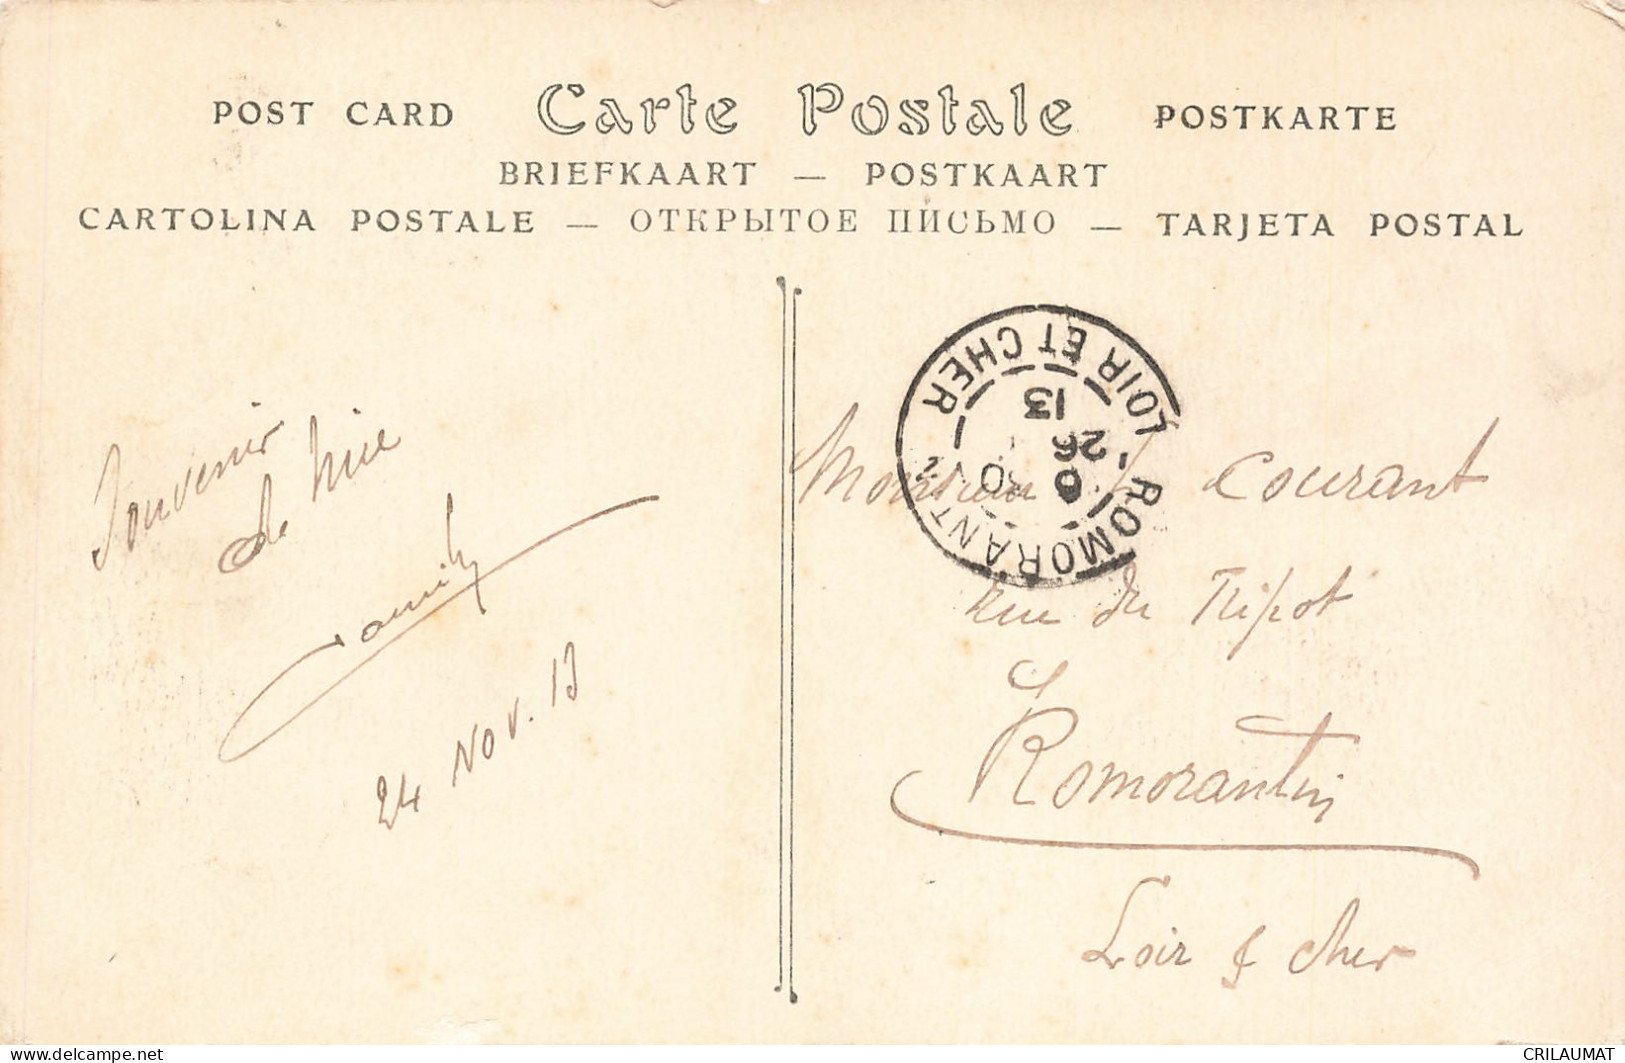 POST CARD Carte Postale POSTKARTE
BRIEFKAART — POSTKAART
CARTOLINA POSTALE — ОТКРЫТОЕ ПИСЬМО — TARJETA POSTAL
Souvenir
de Nice
24 Nov. 13
ROMORANTIN
LOIR ET CHER
13
26
Monsieur Courant
rue du Tripot
Romorantin
Loir & Cher
delcampe.net
CRILAUMAT